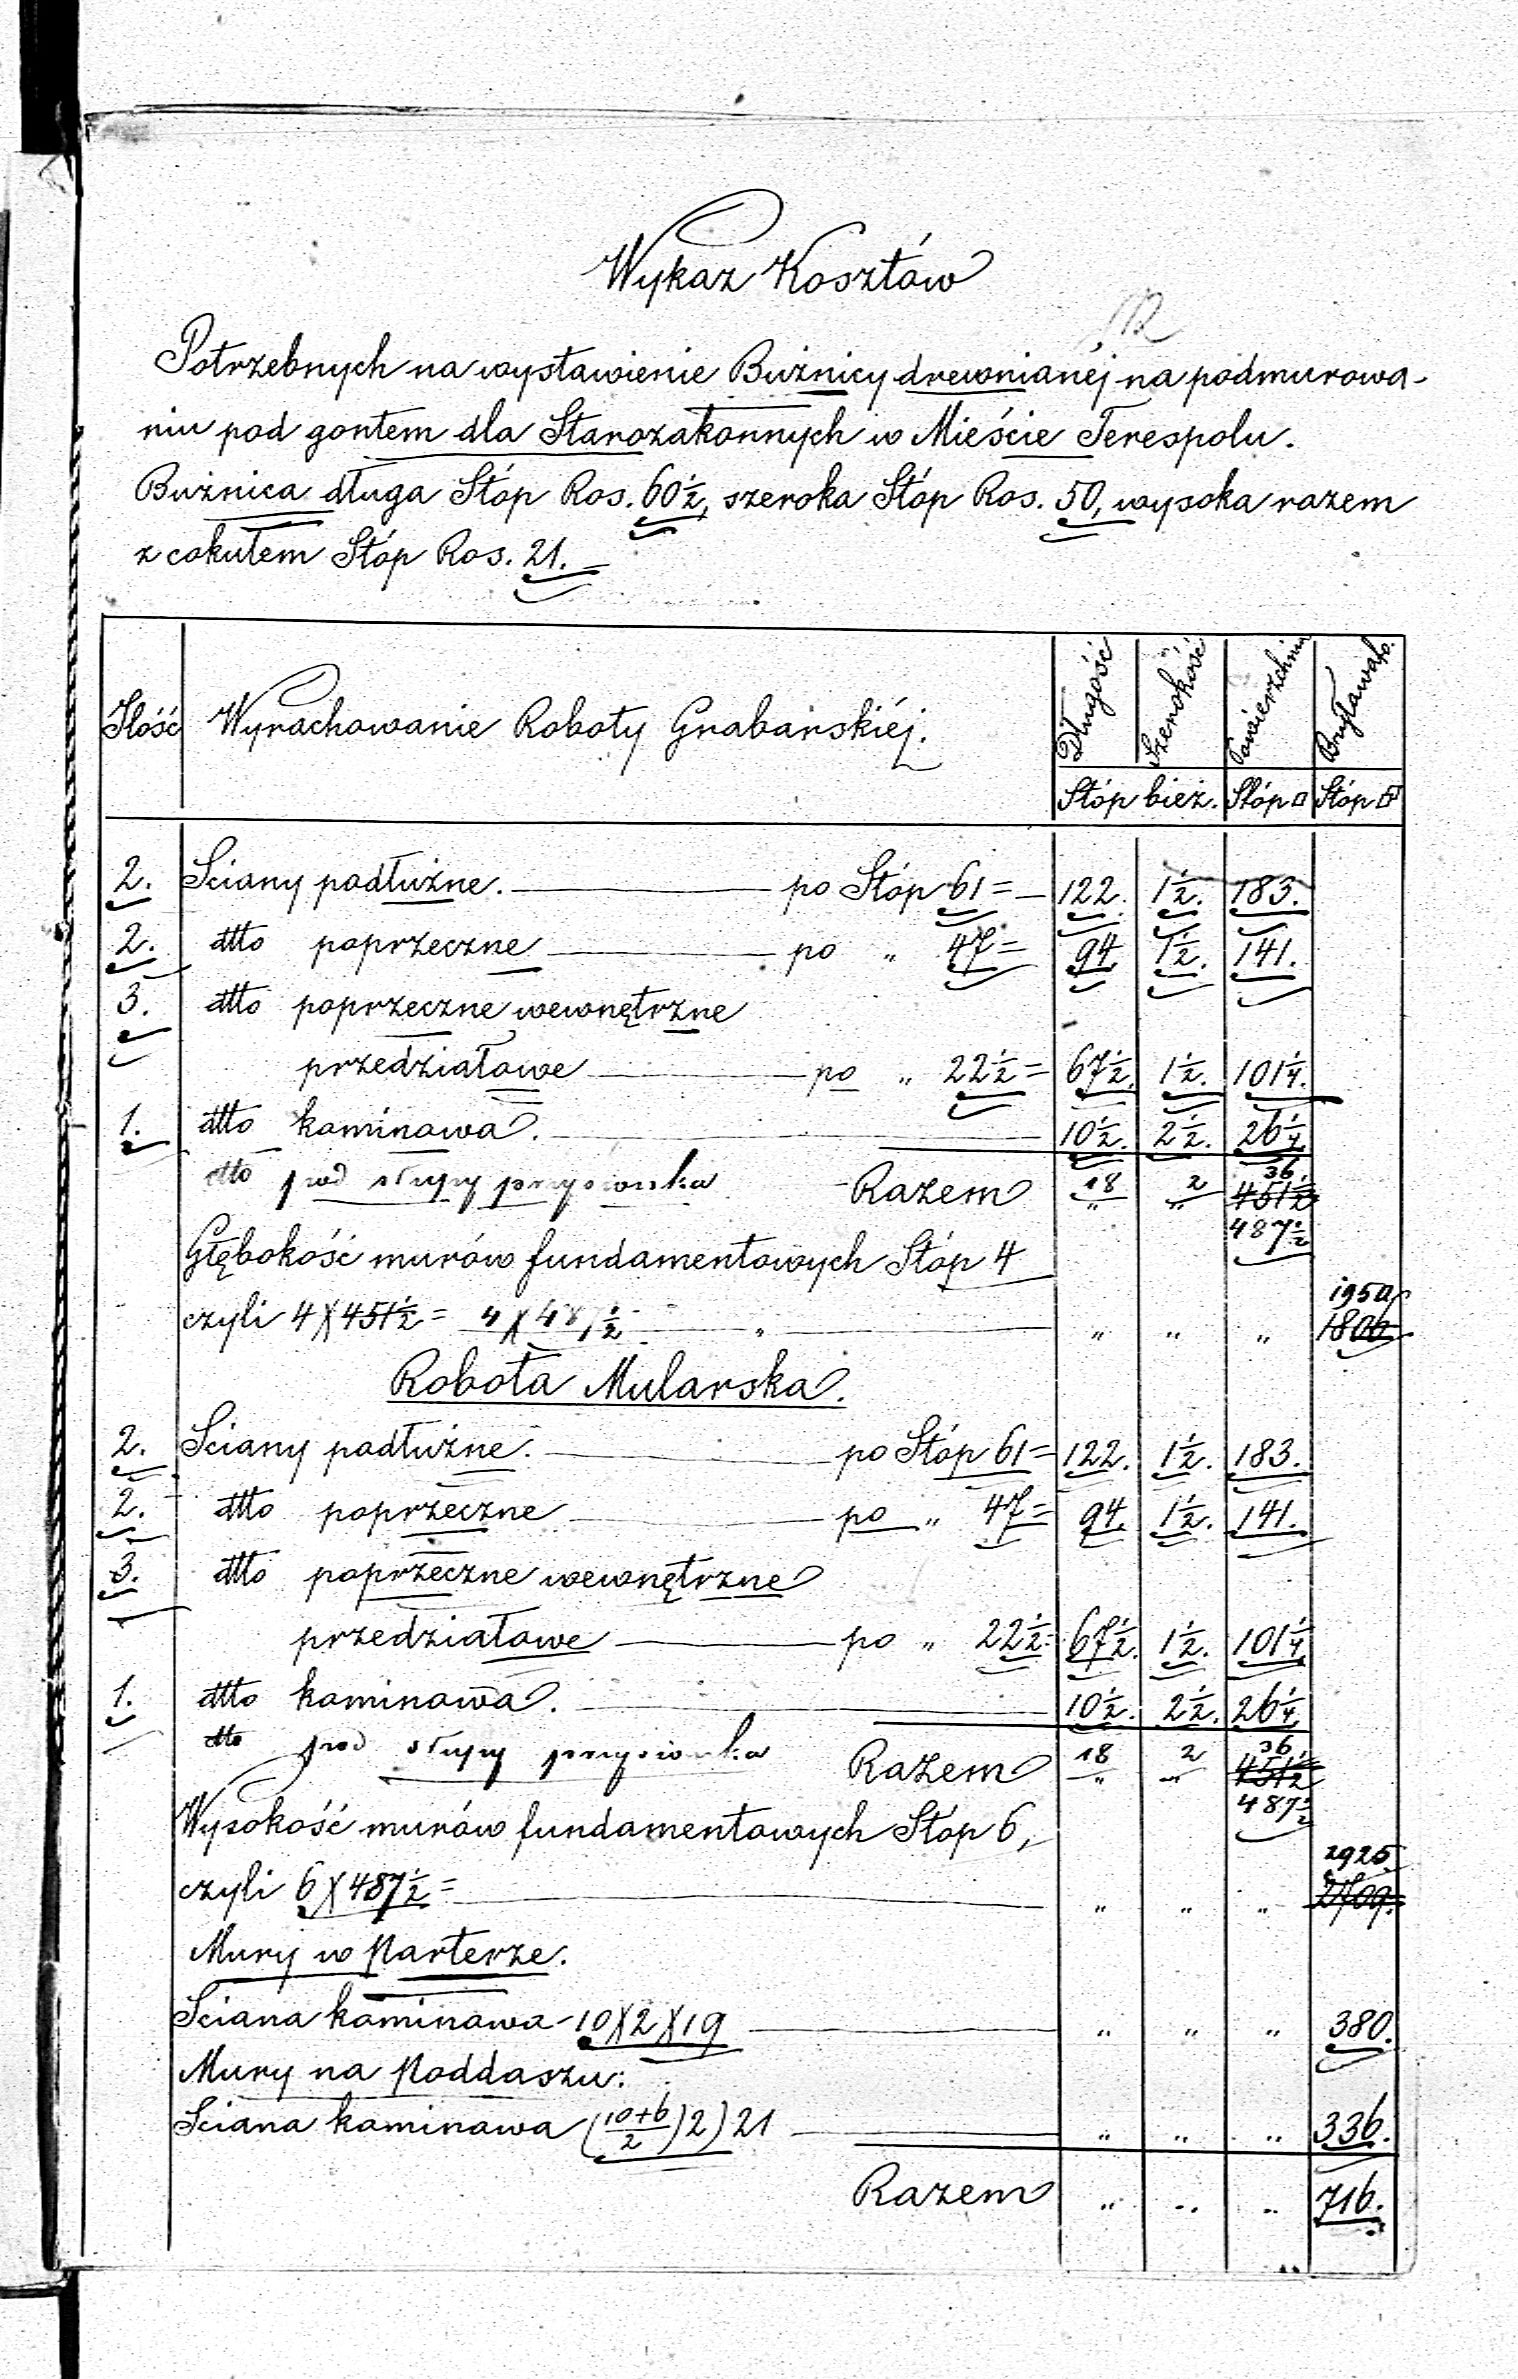 Wykaz Kosztów
Potrzebnych na wystawienie Bużnicy drewnianéj na podmurowa-
niu pod gontem dla Starozakonnych w Mieście Terespolu.
Bużnica długa Stóp Ros. 60½, szeroka Stóp Ros. 50, wysoka razem
z cokułem Stóp Ros. 21.=
Ilość Wyrachowanie Roboty Grabarskiéj. Długość Szerokość Powierzchnia
Stóp bież. Stóp □ Stóp
2. Sciany podłużne. po Stóp 61= 122. 1½. 183.
2. dtto poprzeczne po „ 47= 94. 1½. 141.
3. dtto poprzeczne wewnętrzne
przedziałowe po „ 22½= 67½. 1½. 101¼.
1. dtto kominowa. 10½. 2½. 26¼
dtto pod słupy przysionka Razem 18 „ 2 „ 36. 451½
487½
Głębokość murów fundamentowych Stóp 4
1950
czyli 4 X 451½= 4 X 487½ „ „ „ „ 1806
Robota Mularska.
2. Sciany podłużne. po Stóp 61= 122. 1½. 183.
2. dtto poprzeczne po „ 47= 94. 1½. 141.
3. dtto poprzeczne wewnętrzne
przedziałowe po „ 22½= 67½. 1½. 101¼
1. dtto kominowa. 10½. 2½. 26¼
dtto pod słupy przysionka Razem 18 „ 2 „ 36 451½
487½
Wysokość murów fundamentowych Stóp 6,
2925.
czyli 6 X 487½= „ „ „ 2709.
Mury w Parterze.
Sciana kominowa 10 X 2 X 19 „ „ „ 380.
Mury na Poddaszu:
Sciana kominowa (10+6/2)2)21 „ „ „ 336.
Razem „ „ „ 716.